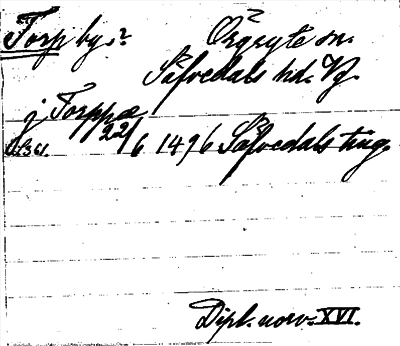 Torp by.? Örgryte sn.
Säfvedals hd. Vg.
j Torppæ
22/6 1496 Säfvedals ting.
Dipl. norv. XVI.